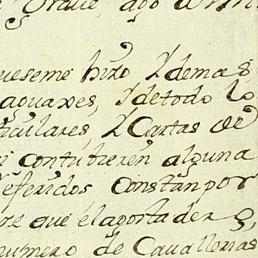 ueseme hizo, y demas
aguaxes, y de todo lo
ticulares, y Cartas de
contubieren alguna
eferidos Constan por
que el aportader
numero de Cavallerias